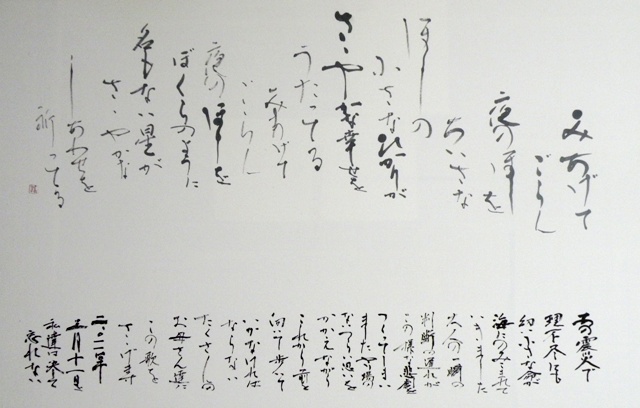 みあげて
ごらん
夜のほしを
ちいさな
ほしの
小さなひかりが
ささやかな幸せを
うたってる
みあげて
ごらん
夜のほしを
ぼくらのように
名もない星が
ささやかな
しあわせを
祈ってる
この震災で
理不尽にも
幼い小さな命が
海にのみこまれて
いきました
大人の一瞬の
判断の遅れが
この様な悲劇を
つくってしまい
ました やり場の
ないつらい思いを
かかえながら
これから前を
向いて歩いて
いかなければ
ならない
たくさんの
お母さん達に
この歌を
ささげます
二〇一一年
三月十一日を
私達は決して
忘れない